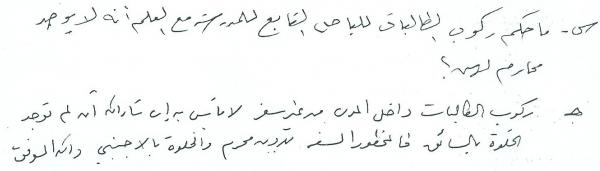 س - ما حكم ركوب الطالبات للباص التابع للمدرسة مع العلم أنه لا يوجد
محارم لهن؟
جـ ركوب الطالبات داخل المدن من غير سفر لا بأس به إن شاء الله أن لم توجد
الخلوة بالسائق فالمحظور السفر بدون محرم والخلوة بالاجنبي والله الموفق